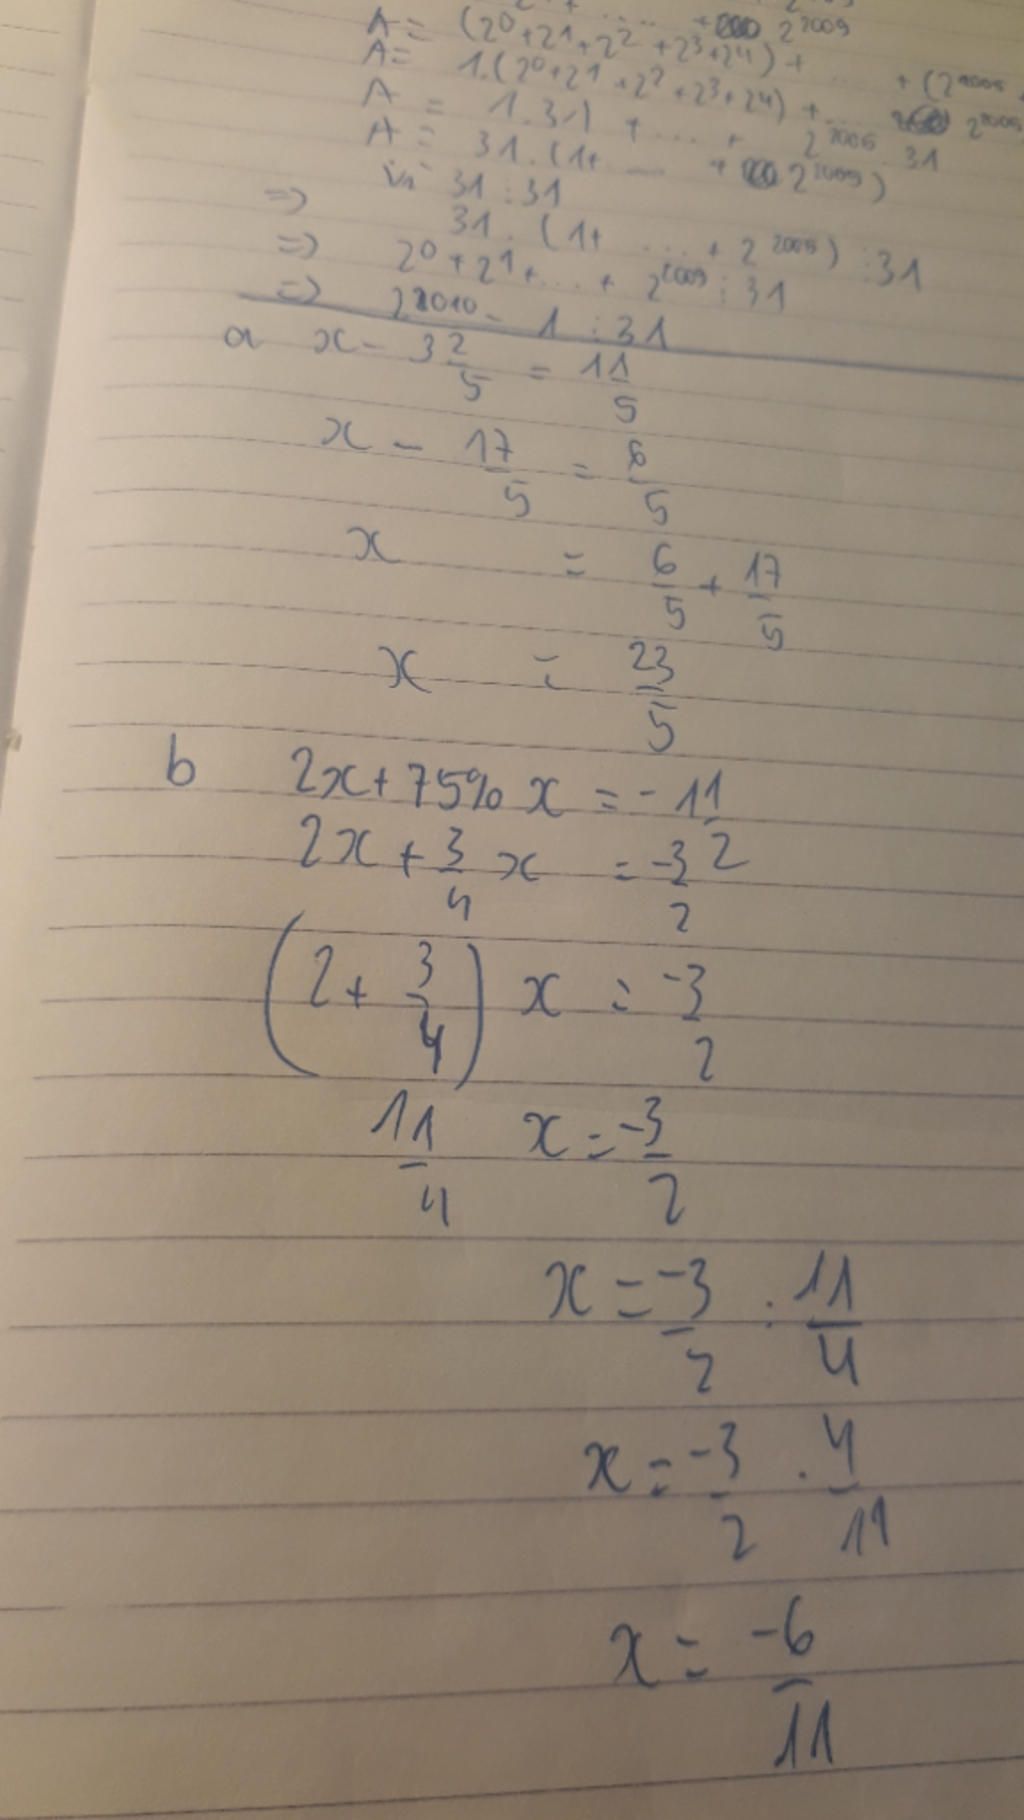 A = (2⁰+2¹+2²+2³+2⁴)+ ... + (2²⁰⁰⁵
A = 1.(2⁰+2¹+2²+2³+2⁴) + ... 2²⁰⁰⁵
A = 1.31 + ... + 2²⁰⁰⁵.31
A = 31.(1+ ... + 2²⁰⁰⁵)
vì 31 ⋮ 31
=> 31.(1+ ... + 2²⁰⁰⁵) ⋮ 31
=> 2⁰+2¹+...+ 2²⁰⁰⁹ ⋮ 31
=> 2²⁰¹⁰ - 1 ⋮ 31
a x - 3 2/5 = 1 1/5
x - 17/5 = 6/5
x = 6/5 + 17/5
x = 23/5
b 2x + 75% x = -1 1/2
2x + 3/4 x = -3/2
(2 + 3/4) x = -3/2
11/4 x = -3/2
x = -3/2 : 11/4
x = -3/2 . 4/11
x = -6/11